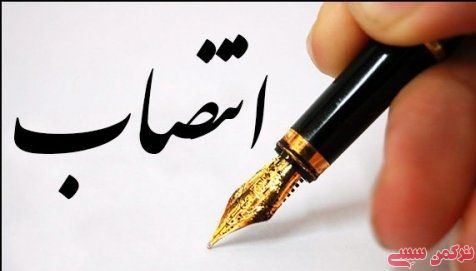 انتصاب
ترکمن سسی